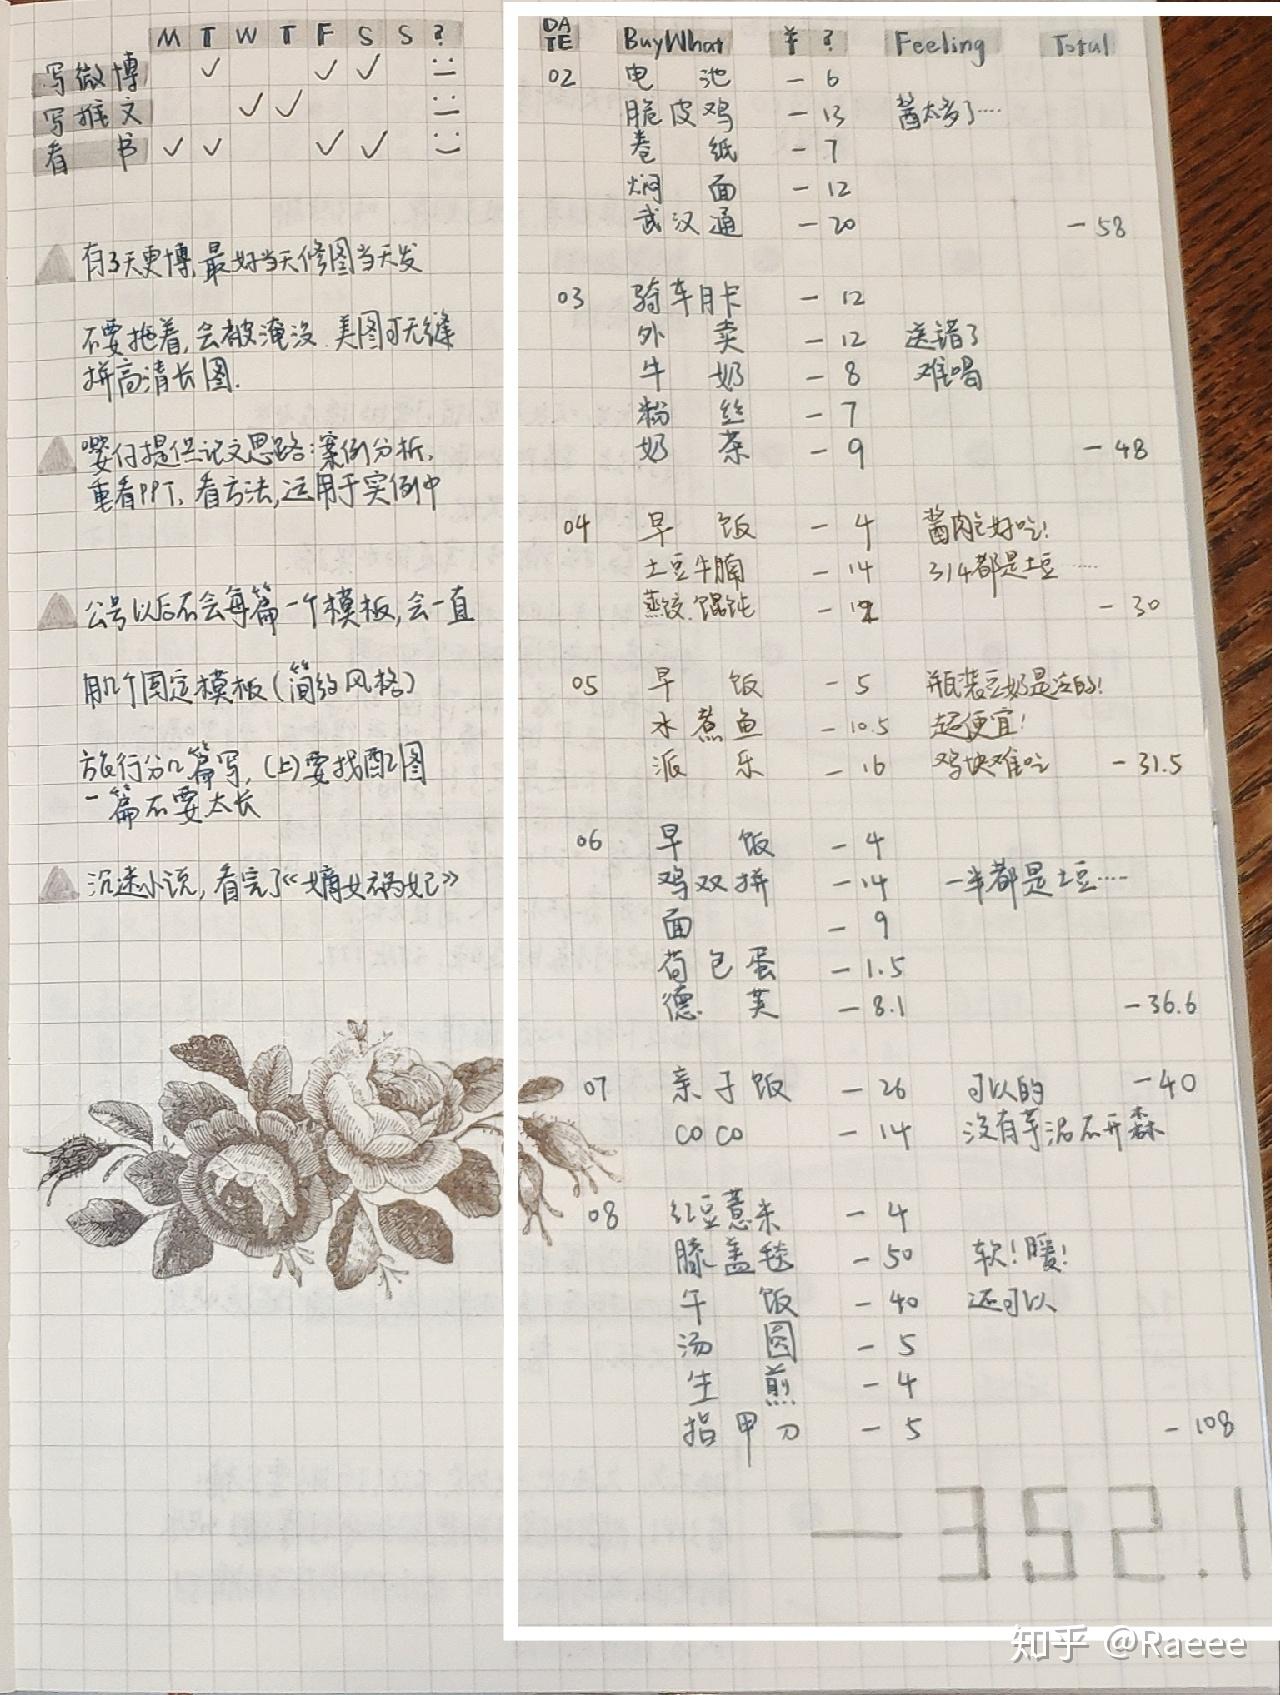 M T W T F S S ?
写微博
写推文
看书
有3天更博,最好当天修图当天发
不要拖着,会被淹没.美图可无缝
拼高清长图.
婴付提供论文思路:案例分析.
重看PPT,看方法,运用于实例中
公号以后不会每篇一个模板,会一直
用几个固定模板(简约风格)
旅行分几篇写,(上)要找配图
一篇不要太长
沉迷小说,看完了《嫡女祸妃》
DATE BuyWhat ¥? Feeling Total
02 电池 -6
脆皮鸡 -13 酱太多了……
卷纸 -7
焖面 -12
武汉通 -20 -58
03 骑车月卡 -12
外卖 -12 送错了
牛奶 -8 难喝
粉丝 -7
奶茶 -9 -48
04 早饭 -4 酱肉包好吃!
土豆牛腩 -14 3/4都是土豆……
蒸饺.馄饨 -12 -30
05 早饭 -5 瓶装豆奶是冷的!
水煮鱼 -10.5 超便宜!
派乐 -16 鸡块难吃 -31.5
06 早饭 -4
鸡双拼 -14 一半都是土豆……
面 -9
荷包蛋 -1.5
德芙 -8.1 -36.6
07 亲子饭 -26 可以的 -40
COCO -14 没有芋泥不开森
08 红豆薏米 -4
膝盖毯 -50 软!暖!
午饭 -40 还可以
汤圆 -5
生煎 -4
指甲刀 -5 -108
-352.1
知乎 @Raeee